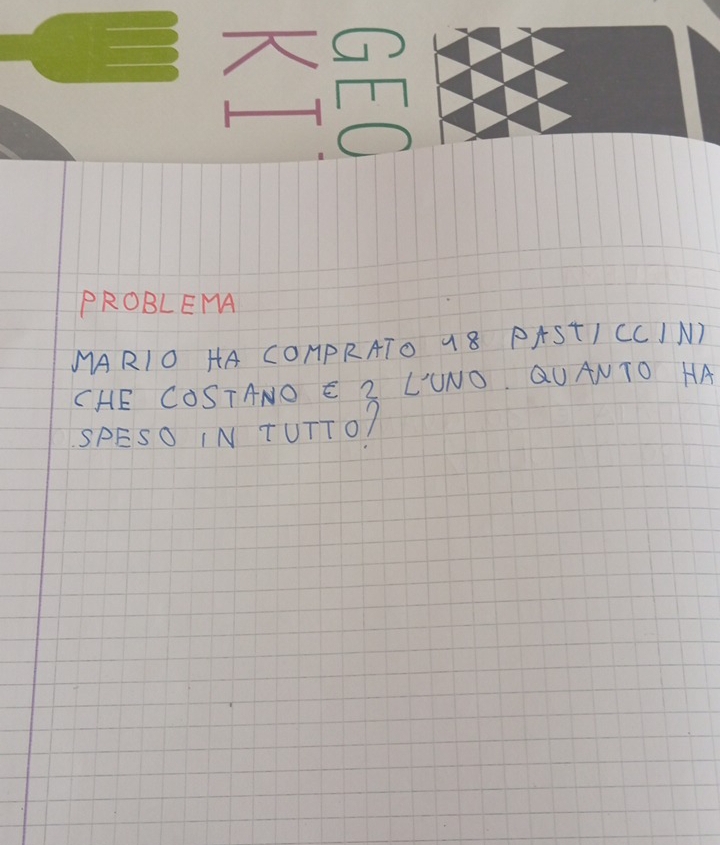 GEO
KI
PROBLEMA
MARIO HA COMPRATO 18 PASTICCINI
CHE COSTANO € 2 L'UNO. QUANTO HA
SPESO IN TUTTO?